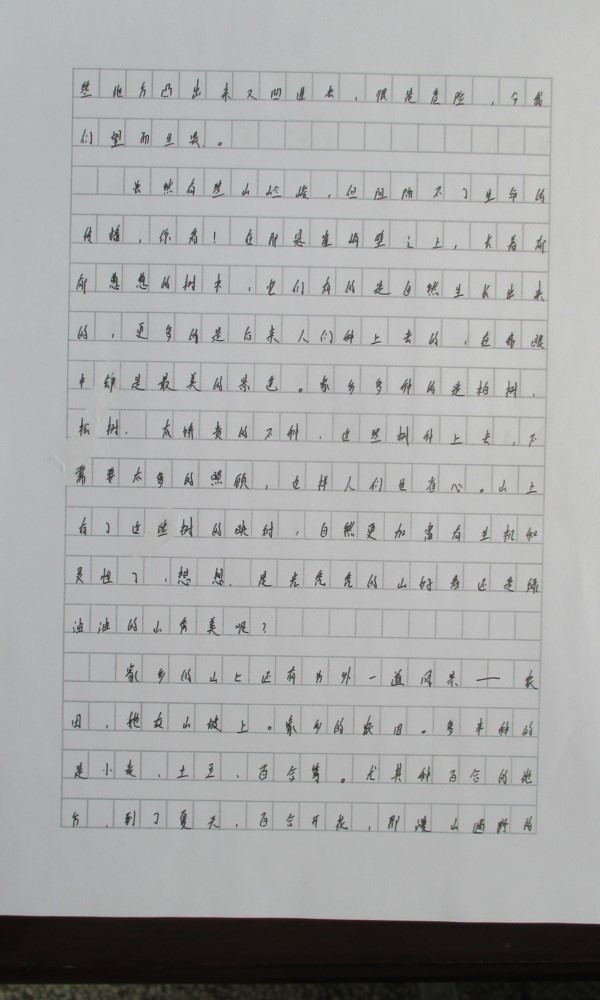 些地方凸出来又凹进去，很是危险，令我
们望而生畏。
虽然有些山险峻，但阻隔不了生命的
传播，你看！在那悬崖峭壁之上，长着郁
郁葱葱的树木，它们有的是自然生长出来
的，更多的是后来人们种上去的，在有眼
中却是最美的景色。家乡多种的是柏树，
松树，太娇贵的不种，这些树种上去，不
需要太多的照顾，这样人们也省心。山上
有了这些树的映衬，自然更加富有生机和
灵性了，想想，是光秃秃的山好看还是绿
油油的山秀美呢？
家乡的山上还有另外一道风景——农
田，她在山坡上。家乡的农田。多半种的
是小麦、土豆、百合等。尤其种百合的地
方，到了夏天，百合开花，那漫山遍野的